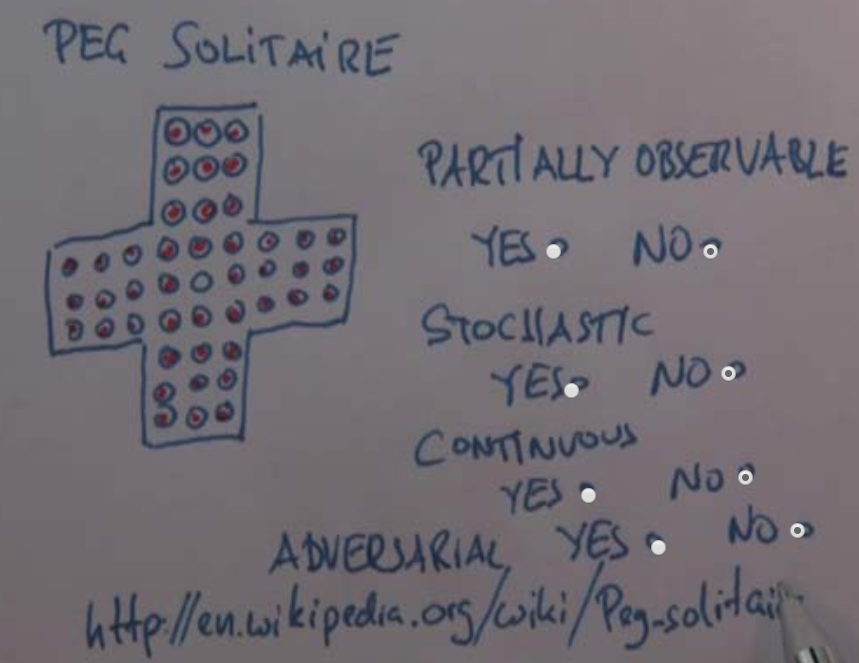 PEG SOLITAIRE
PARTIALLY OBSERVABLE
YES NO
STOCHASTIC
YES NO
CONTINUOUS
YES NO
ADVERSARIAL YES NO
http://en.wikipedia.org/wiki/Peg-solitai